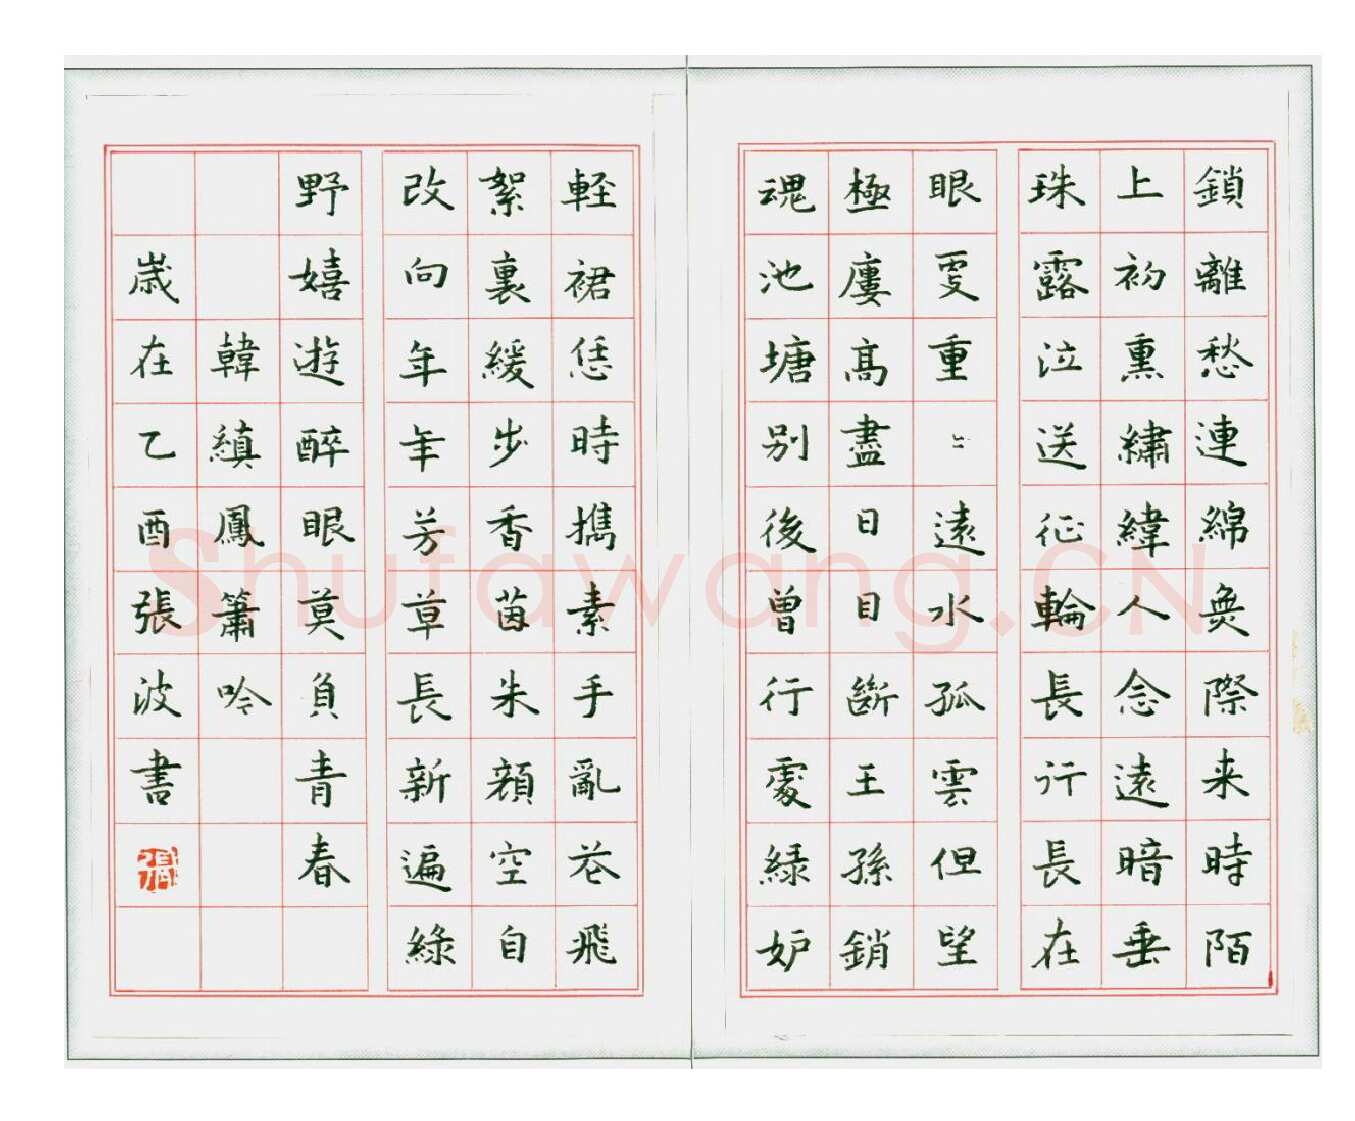 鎖離愁連綿無際来時陌
上初熏繡緯人念遠暗垂
珠露泣送征輪長行長在
眼更重〻遠水孤雲但望
極廔高盡日目斷王孫銷
魂池塘别後曽行處緑妒
軽裙恁時攜素手亂花飛
絮裏緩步香茵朱顔空自
改向年年芳草長新遍綠
野嬉遊醉眼莫負青春
韓縝鳳簫吟
歳在乙酉張波書
Shufawang.CN